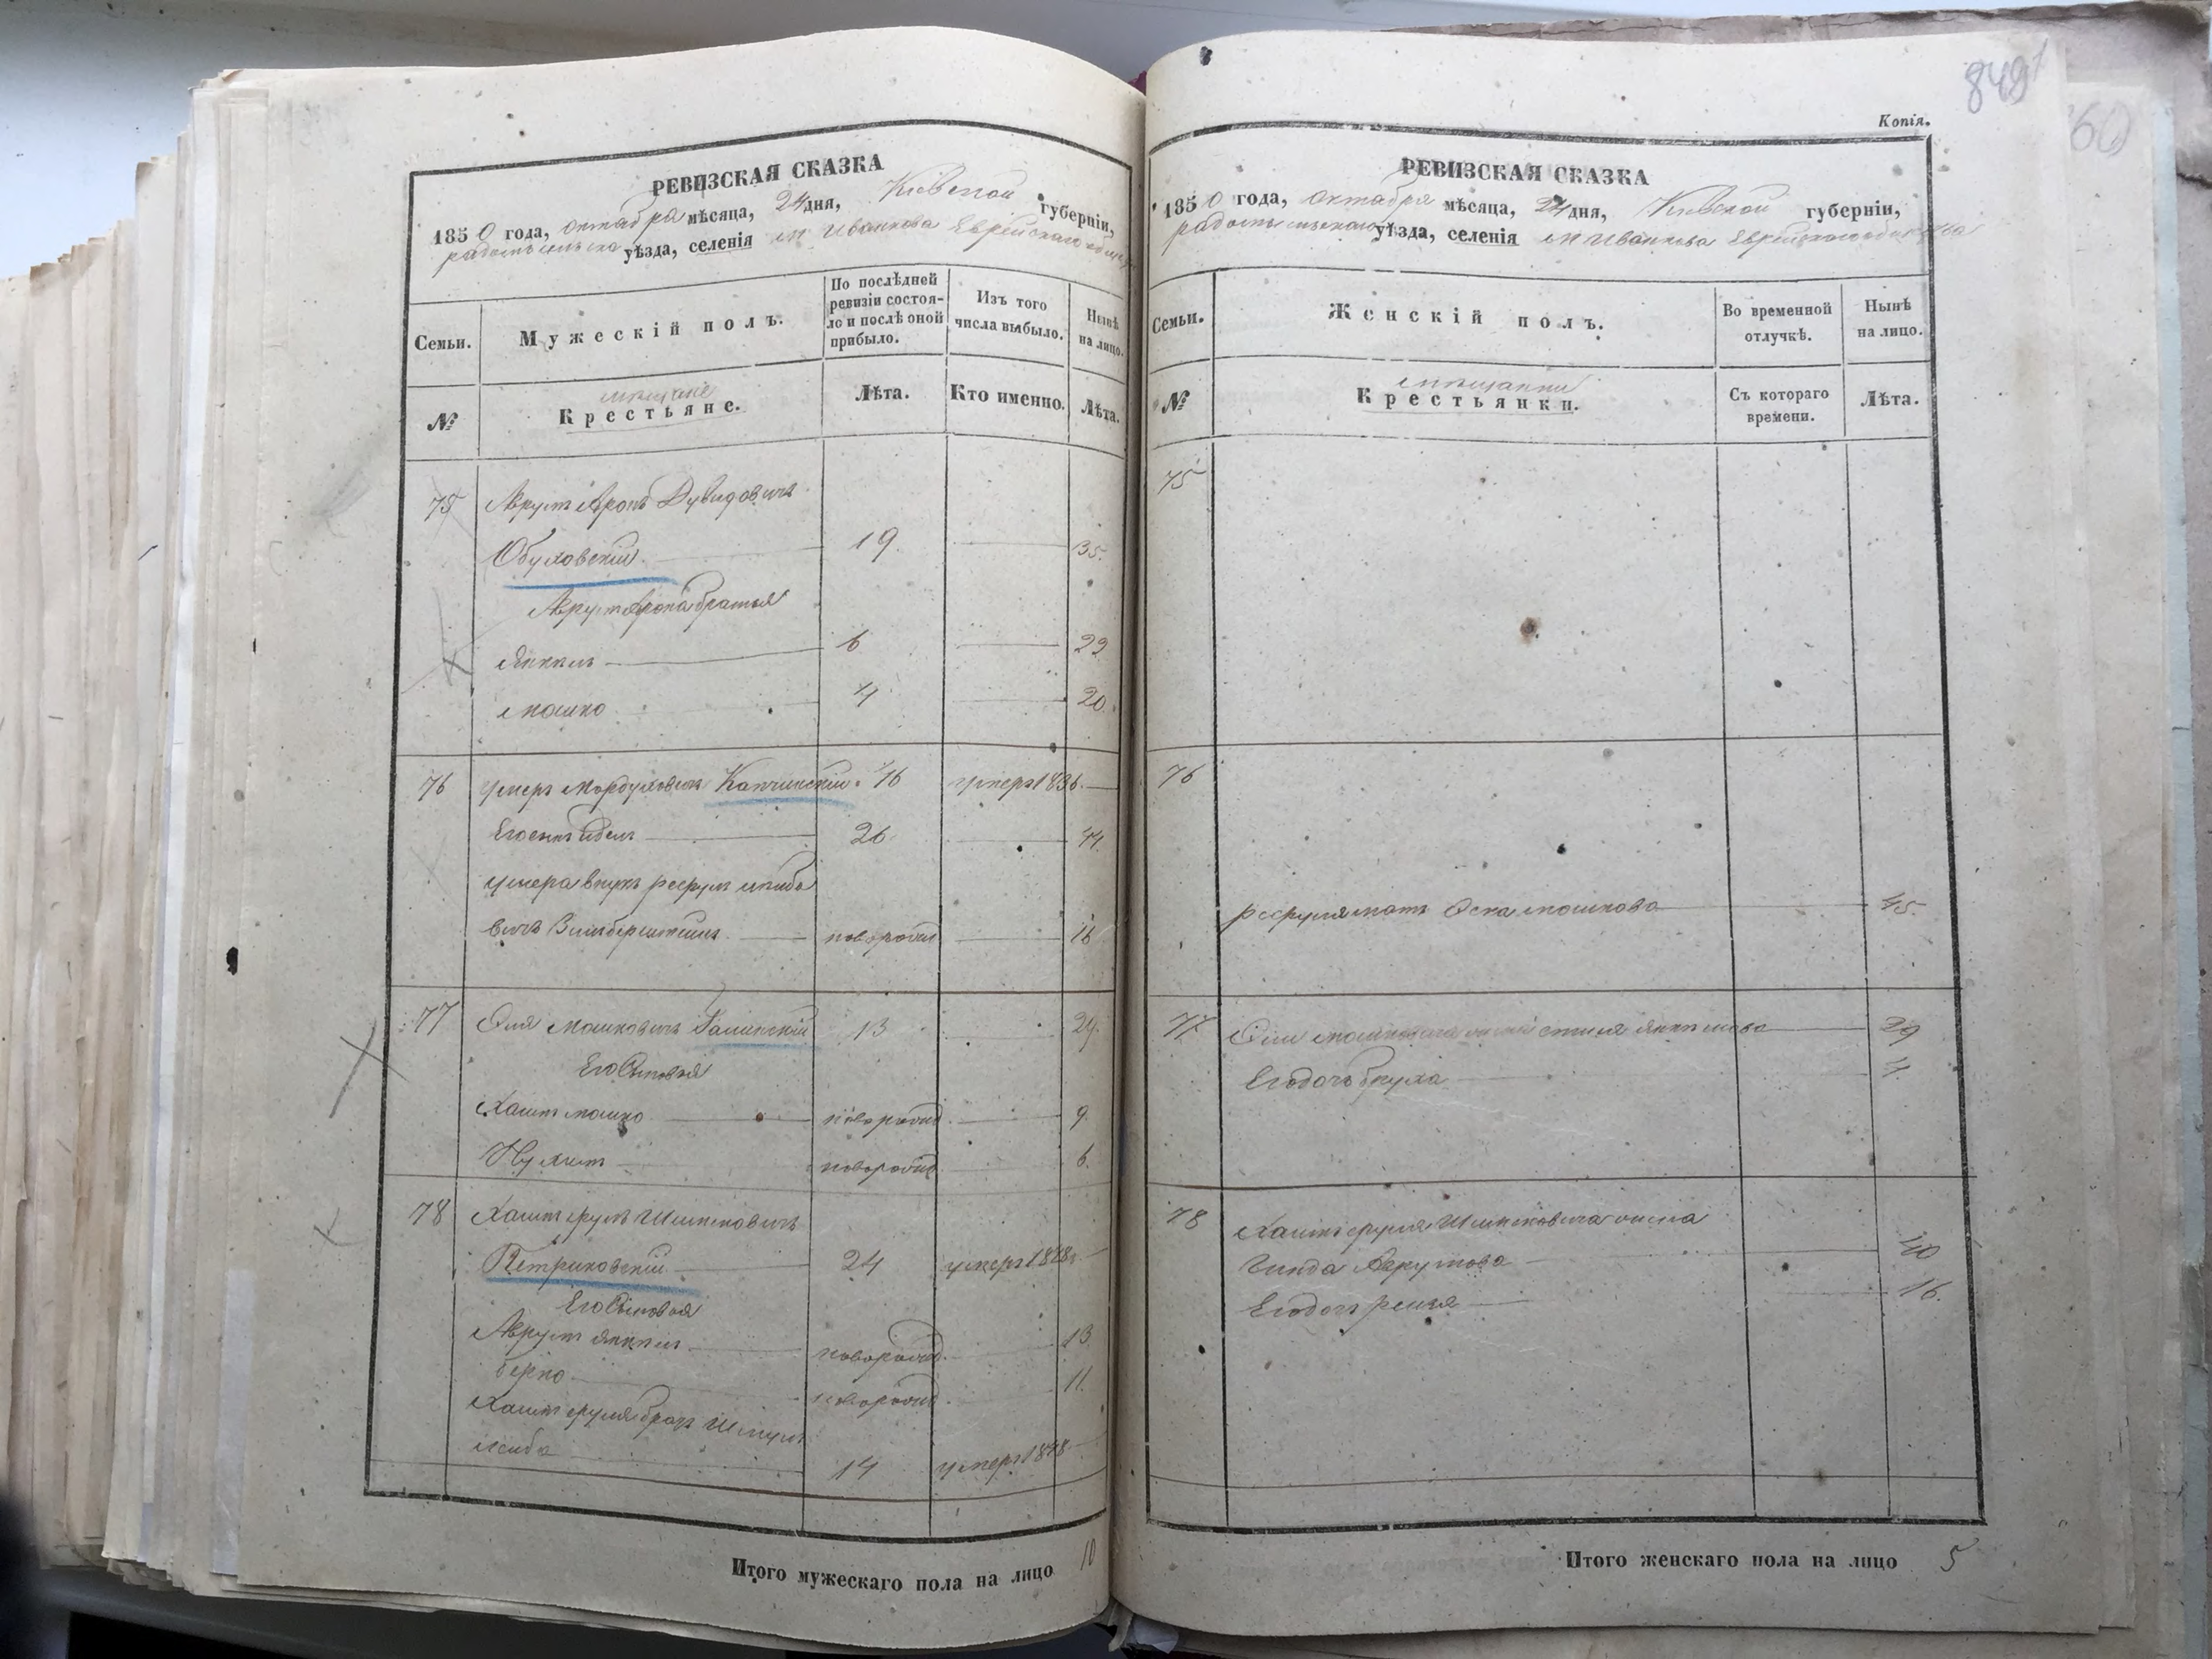 РЕВИЗСКАЯ СКАЗКА
1850 года, октября мѣсяца, 24 дня, Кіевской губерніи,
уѣзда, селенія м Иванкова Еврейскаго
Семьи.
Мужескій полъ.
По послѣдней ревизіи состояло и послѣ оной прибыло.
Изъ того числа выбыло.
Нынѣ на лицо.
№
мещане
Крестьяне.
Лѣта.
Кто именно.
Лѣта.
75 Аврумъ Аронъ Дувидовичъ
Обуховскій 19. 35.
Аврумъ Арона братья
Янкель 6 22
Мошко 4 20.
76 Мордуховичъ Капчинскій 46 умеръ 1836.
Его сынъ Идель 26 44.
внукъ Есруль Лейбо
вичъ новорожд 16
77 Эля Мошковичъ 13 29.
Его Сыновья
Хаимъ Мошко новорожд. 9.
Нухим новорожд 6.
78 Хаимъ Сруль Шмулевичъ
Петриковскій 24 умеръ 1848.
Его Сыновья
Аврумъ Янкель новорожд. 13
Берко новорожд. 11.
Хаимъ Сруля братъ Шмуль
Лейба 14 умеръ 1848
Итого мужескаго пола на лицо 10
849
60
Копія.
РЕВИЗСКАЯ СКАЗКА
1850 года, октября мѣсяца, 24 дня, Кіевской губерніи,
уѣзда, селенія м Иванкова Еврейскаго общества
Семьи.
Женскій полъ.
Во временной отлучкѣ.
Нынѣ на лицо.
№
мещанки
Крестьянки.
Съ котораго времени.
Лѣта.
75
76
мать Мошкова 45.
77. Эли Мошковича Янкелева 29
Его дочь Бруха 4.
78 Хаимъ Сруля Шмулевича жена
Аврумова 40
Его дочь Рейзя 16.
Итого женскаго пола на лицо 5